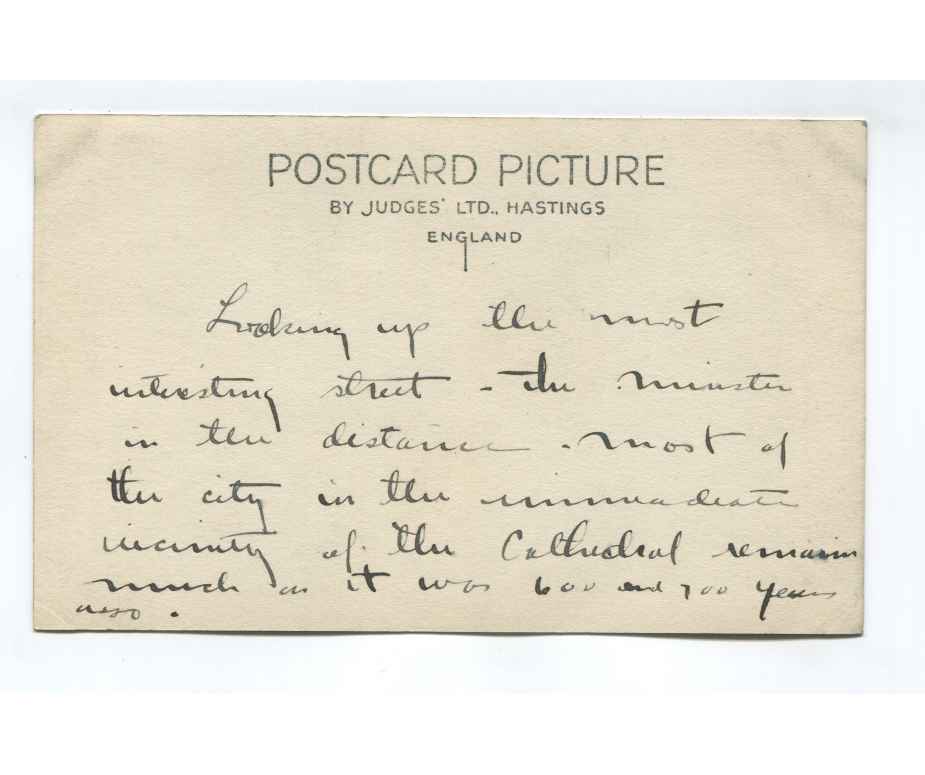 POSTCARD PICTURE
BY JUDGES' LTD., HASTINGS
ENGLAND
Looking up the most
interesting street - the minster
in the distance - most of
the city in the immeadeate
vicinity of the Cathedral remains
much as it was 600 and 700 years
ago.